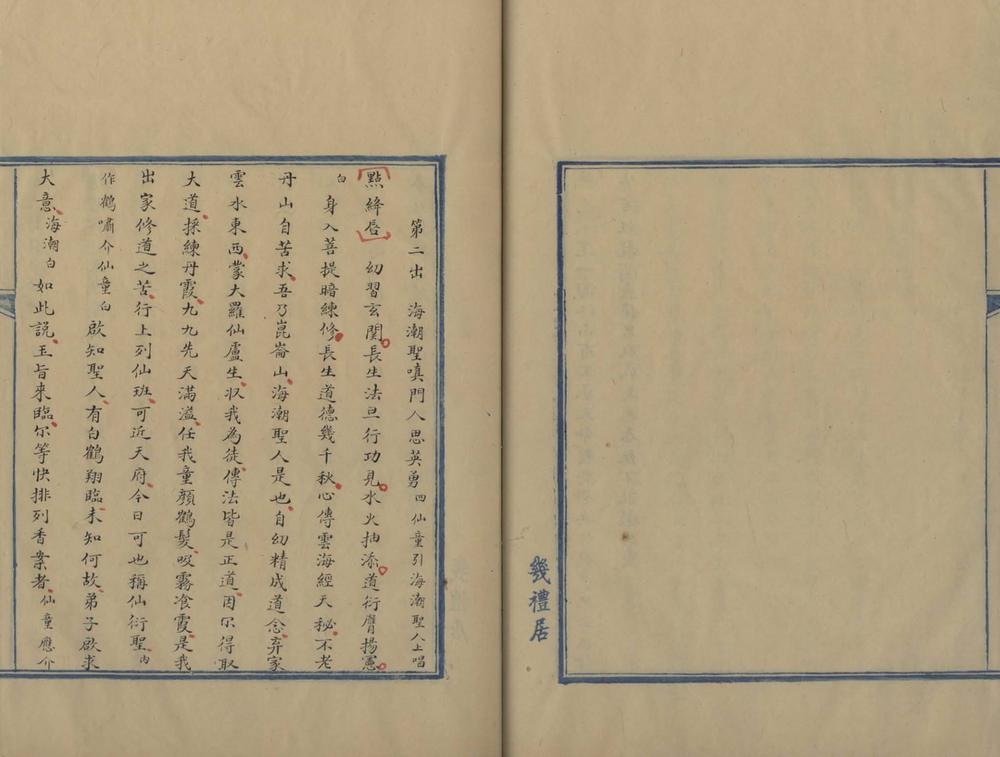 幾禮居
第二出　海潮聖嗔門人思英勇 四仙童引海潮聖人上唱
【點絳唇】幼習玄関。長生法旦行功見。水火抽添。道衍膺揚憲。
白 身入菩提暗練修。長生道德幾千秋。心傳雲海經天秘。不老
丹山自苦求。吾乃崑崙山、海潮聖人是也、自幼精成道念、弃家
雲水東西、蒙大羅仙盧生、収我為徒、傳法皆是正道、因尔得取
大道、採練丹霞、九九先天滿溢、任我童顏鶴髮、吸霧飡霞、是我
出家修道之苦、行上列仙班、可近天府、今日可也稱仙衍聖、內
作鶴嘯介仙童白 啟知聖人、有白鶴翔臨、未知何故、弟子啟求
大意、海潮白 如此說、玉旨來臨、尔等快排列香案者、仙童應介